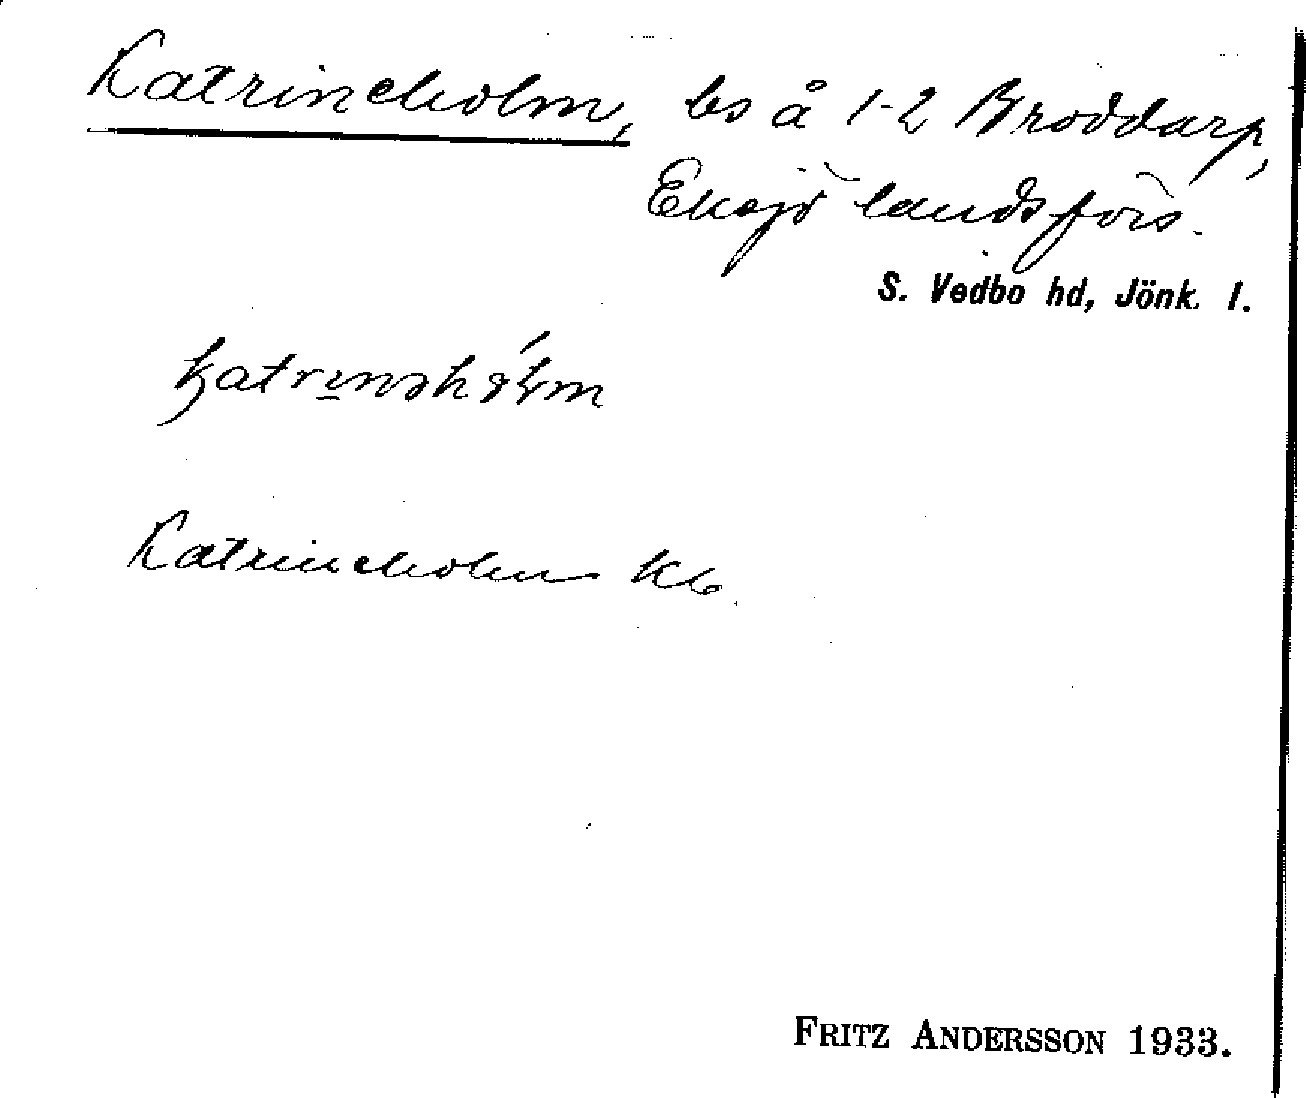 Katrineholm, bs å 1-2 Broddarp,
Eksjö landsförs.
S. Vedbo hd, Jönk. l.
Katrineholm kb.
FRITZ ANDERSSON 1933.